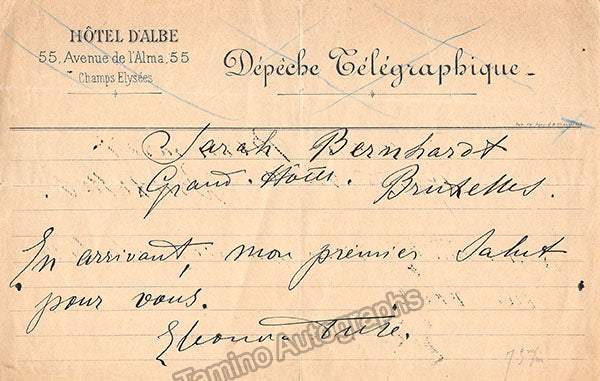 HÔTEL D'ALBE
55, Avenue de l'Alma, 55
Champs Elysées
Dépêche Télégraphique
Sarah Bernhardt
Grand-Hôtel. Bruxelles.
En arrivant, mon premier salut
pour vous.
Eleonora Duse.
Tamino Autographs